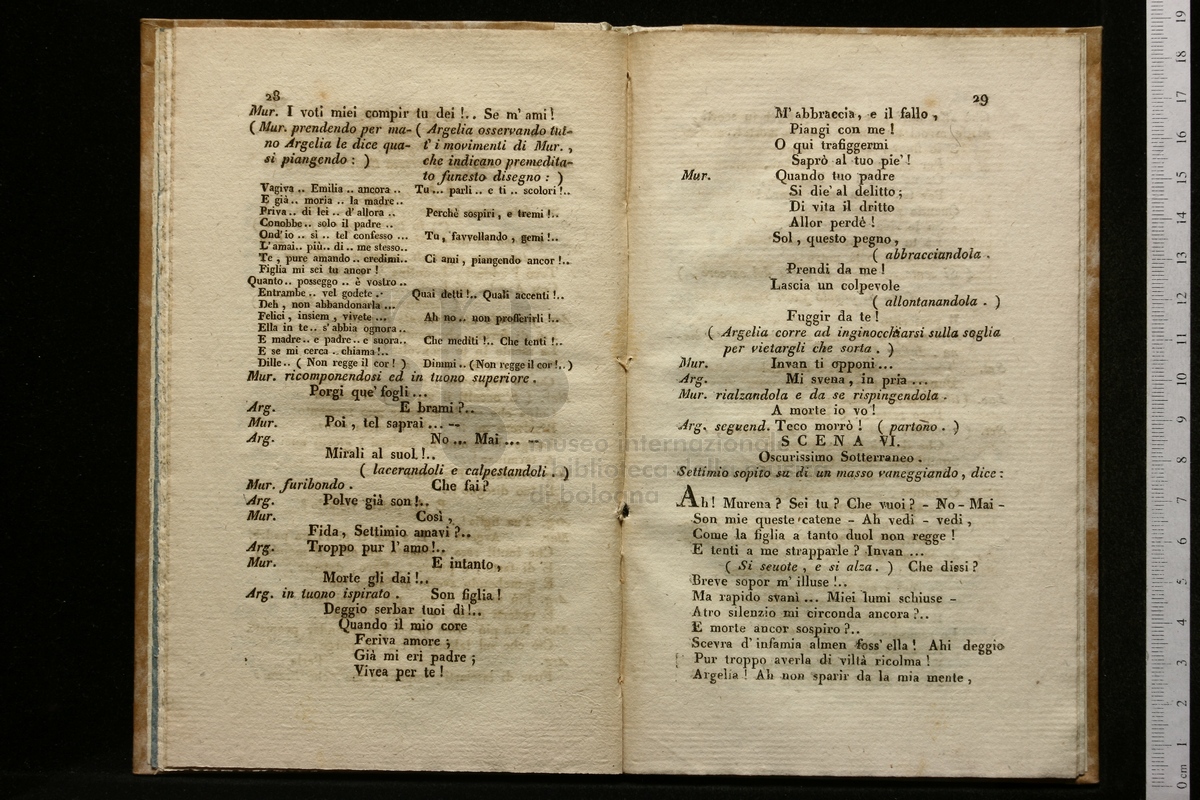 28
Mur. I voti miei compir tu dei !.. Se m' ami !
( Mur. prendendo per ma-
no Argelia le dice qua-
si piangendo : )
( Argelia osservando tut-
t' i movimenti di Mur. ,
che indicano premedita-
to funesto disegno : )
Vagiva .. Emilia .. ancora .. Tu ... parli .. e ti .. scolori !..
E già .. moria .. la madre ..
Priva .. di lei .. d' allora .. Perchè sospiri , e tremi !..
Conobbe .. solo il padre ..
Ond' io .. si .. tel confesso ... Tu , favvellando , gemi !..
L' amai .. più .. di .. me stesso ..
Te , pure amando .. credimi .. Ci ami , piangendo ancor !..
Figlia mi sei tu ancor !
Quanto .. posseggo .. è vostro ..
Entrambe .. vel godete .. Quai detti !.. Quali accenti !..
Deh , non abbandonarla ...
Felici , insiem , vivete ... Ah no .. non profferirli !..
Ella in te .. s' abbia ognora ..
E madre .. e padre .. e suora .. Che mediti !.. Che tenti !..
E se mi cerca .. chiama !..
Dille .. ( Non regge il cor ! ) Dimmi .. ( Non regge il cor !.. )
Mur. ricomponendosi ed in tuono superiore .
Porgi que' fogli ...
Arg. E brami ?..
Mur. Poi , tel saprai ... --
Arg. No ... Mai ... --
Mirali al suol !..
( lacerandoli e calpestandoli . )
Mur. furibondo . Che fai ?
Arg. Polve già son !..
Mur. Così ,
Fida , Settimio amavi ?..
Arg. Troppo pur l' amo !..
Mur. E intanto ,
Morte gli dai !..
Arg. in tuono ispirato . Son figlia !
Deggio serbar tuoi dì !..
Quando il mio core
Feriva amore ;
Già mi eri padre ;
Vivea per te !
29
M' abbraccia , e il fallo ,
Piangi con me !
O qui trafiggermi
Saprò al tuo pie' !
Mur. Quando tuo padre
Si die' al delitto ;
Di vita il dritto
Allor perdè !
Sol , questo pegno ,
( abbracciandola .
Prendi da me !
Lascia un colpevole
( allontanandola . )
Fuggir da te !
( Argelia corre ad inginocchiarsi sulla soglia
per vietargli che sorta . )
Mur. Invan ti opponi ...
Arg. Mi svena , in pria ...
Mur. rialzandola e da se rispingendola .
A morte io vo !
Arg. seguend. Teco morrò ! ( partono . )
SCENA VI.
Oscurissimo Sotterraneo .
Settimio sopito su di un masso vaneggiando , dice :
Ah ! Murena ? Sei tu ? Che vuoi ? - No - Mai -
Son mie queste catene - Ah vedi - vedi ,
Come la figlia a tanto duol non regge !
E tenti a me strapparle ? Invan ...
( Si scuote , e si alza . ) Che dissi ?
Breve sopor m' illuse !..
Ma rapido svanì ... Miei lumi schiuse -
Atro silenzio mi circonda ancora ?..
E morte ancor sospiro ?..
Scevra d' infamia almen foss' ella ! Ahi deggio
Pur troppo averla di viltà ricolma !
Argelia ! Ah non sparir da la mia mente ,
museo internazionale
biblioteca della
di bologna